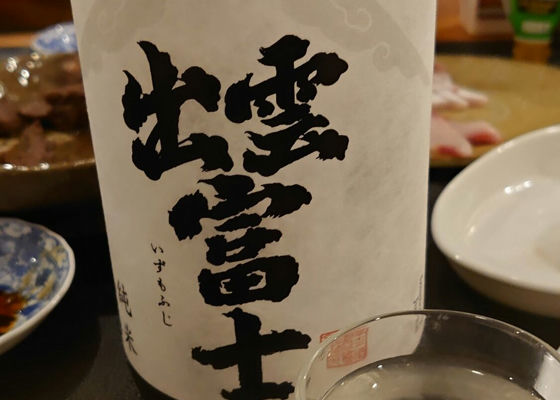 出雲富士
いずもふじ
純米